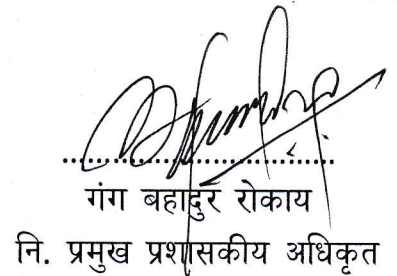 गंग बहादुर रोकाय
नि. प्रमुख प्रशासकीय अधिकृत